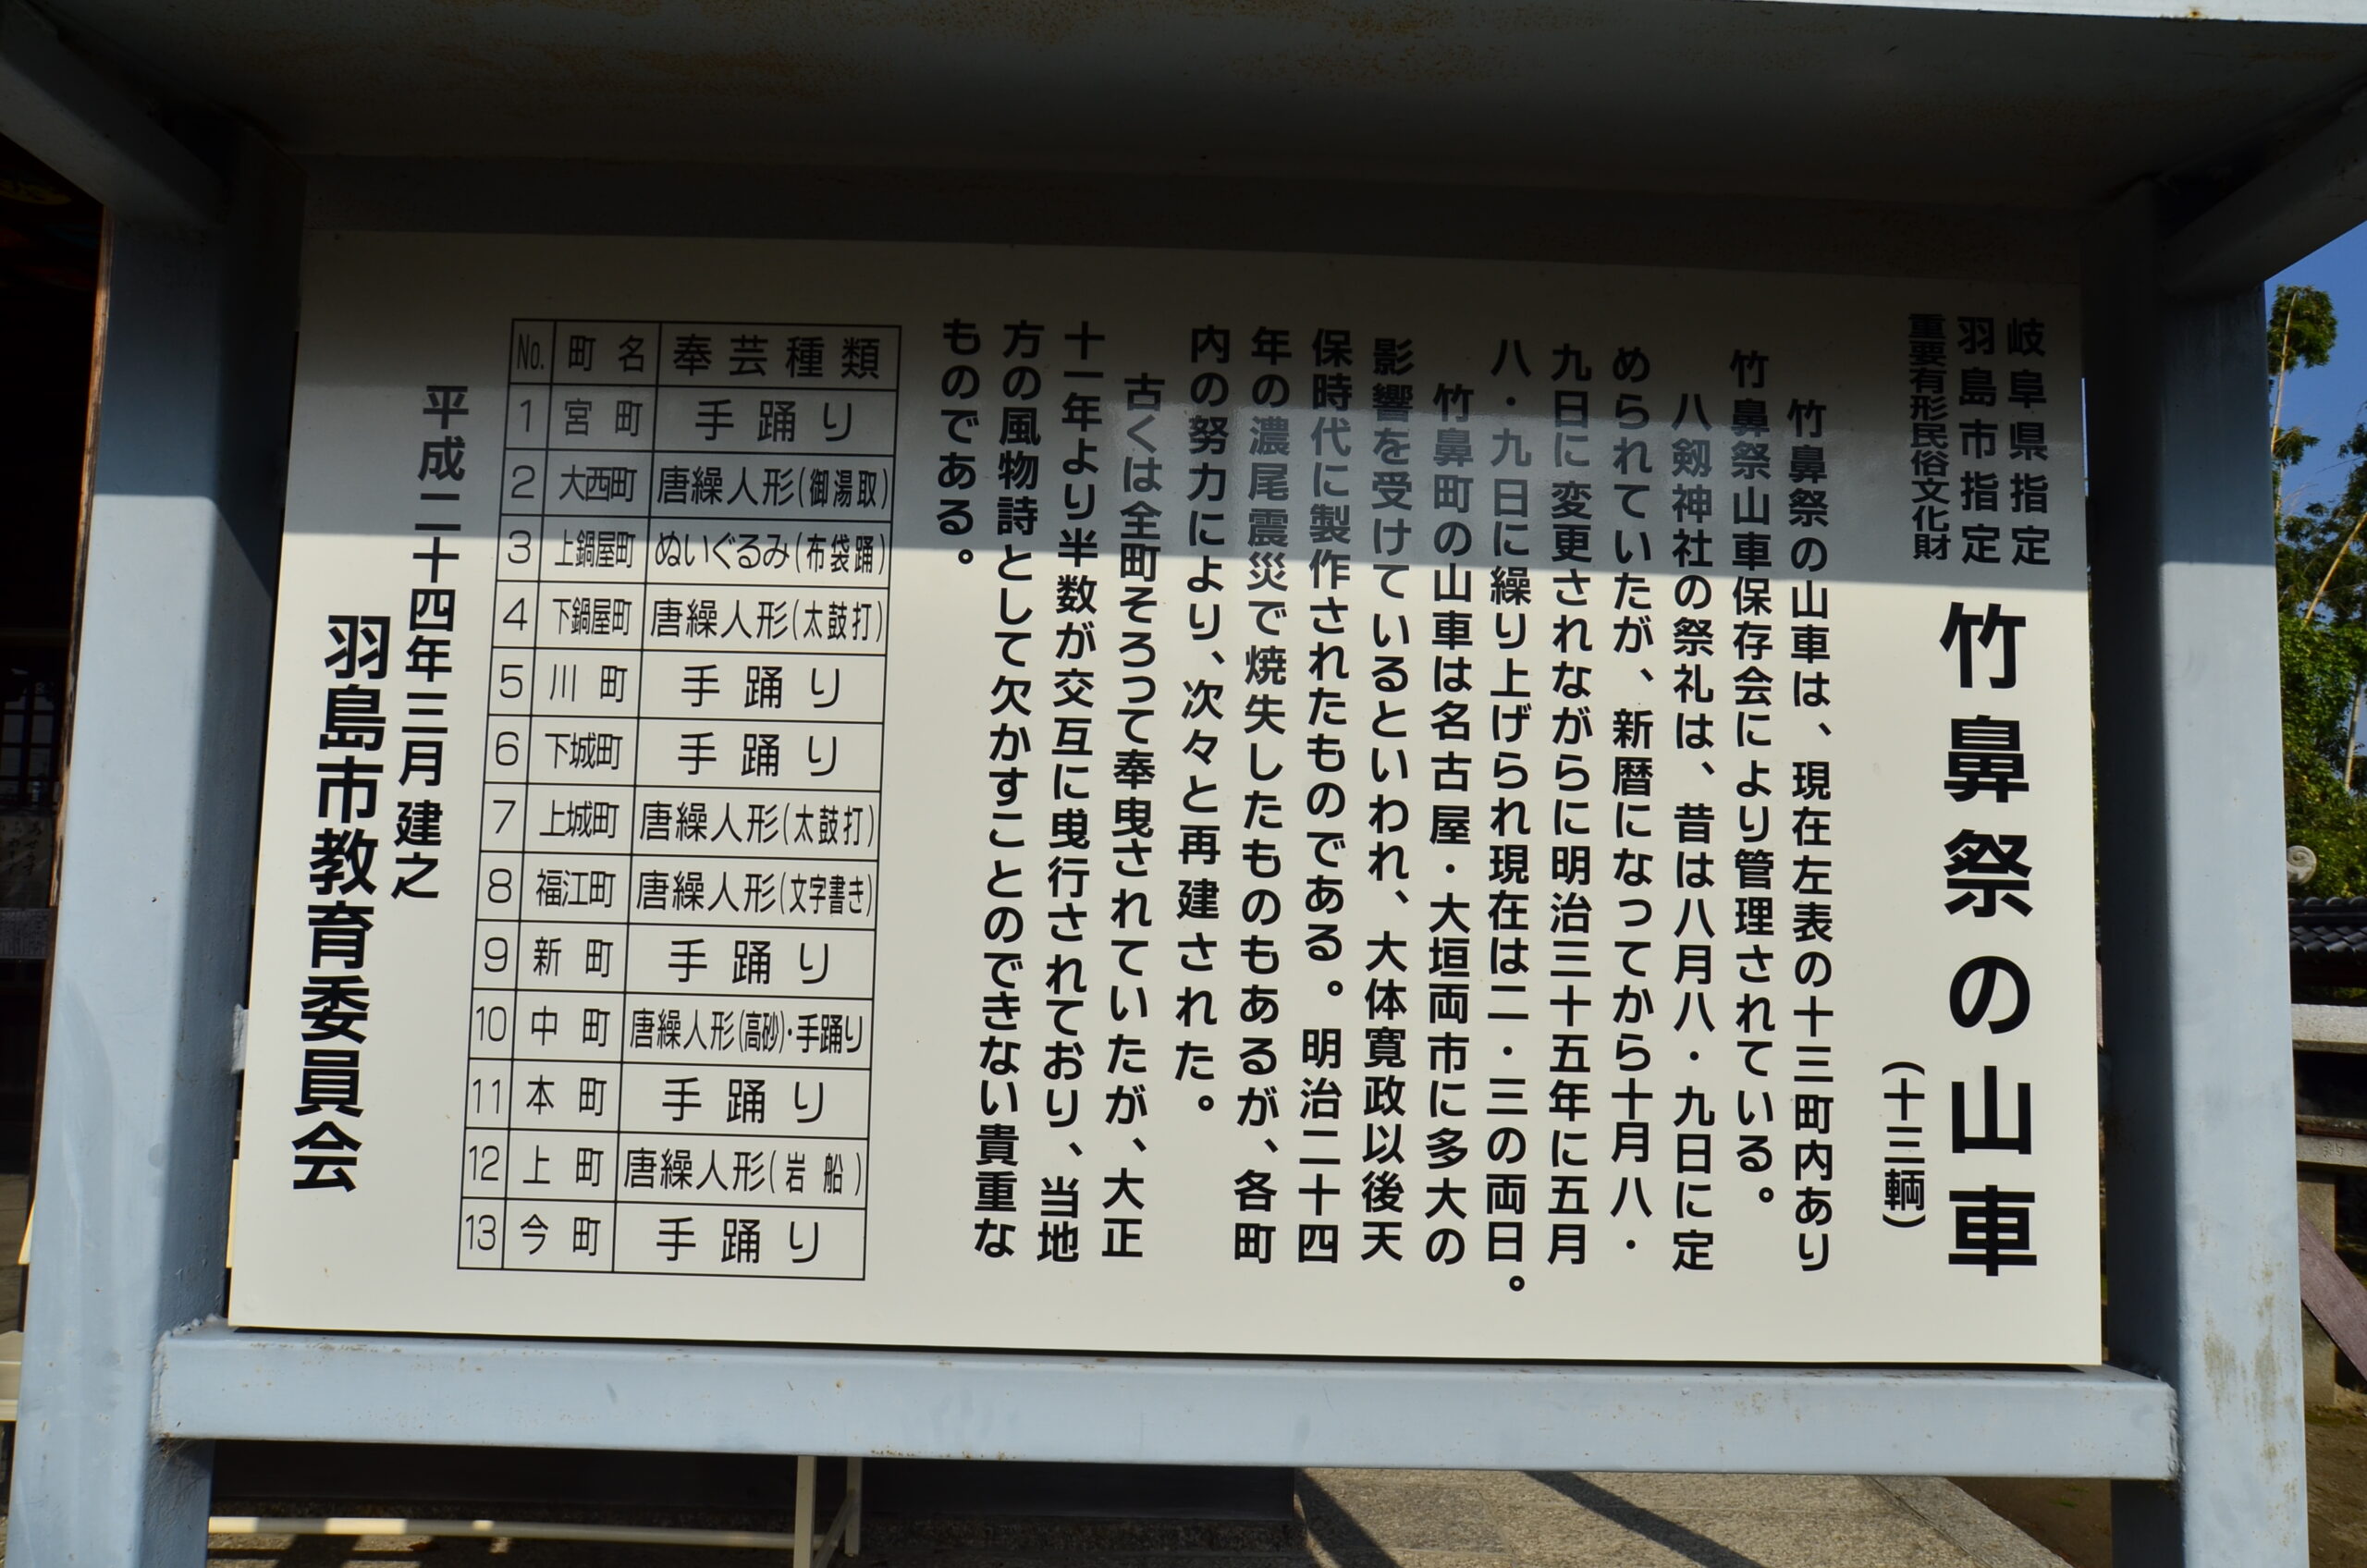 岐阜県指定
羽島市指定
重要有形民俗文化財
竹鼻祭の山車
(十三輌)
竹鼻祭の山車は、現在左表の十三町内あり
竹鼻祭山車保存会により管理されている。
八剱神社の祭礼は、昔は八月八・九日に定
められていたが、新暦になってから十月八・
九日に変更されながらに明治三十五年に五月
八・九日に繰り上げられ現在は二・三の両日。
竹鼻町の山車は名古屋・大垣両市に多大の
影響を受けているといわれ、大体寛政以後天
保時代に製作されたものである。明治二十四
年の濃尾震災で焼失したものもあるが、各町
内の努力により、次々と再建された。
古くは全町そろって奉曳されていたが、大正
十一年より半数が交互に曵行されており、当地
方の風物詩として欠かすことのできない貴重な
ものである。
No. 町名 奉芸種類
1 宮町 手踊り
2 大西町 唐繰人形(御湯取)
3 上鍋屋町 ぬいぐるみ(布袋踊)
4 下鍋屋町 唐繰人形(太鼓打)
5 川町 手踊り
6 下城町 手踊り
7 上城町 唐繰人形(太鼓打)
8 福江町 唐繰人形(文字書き)
9 新町 手踊り
10 中町 唐繰人形(高砂)・手踊り
11 本町 手踊り
12 上町 唐繰人形(岩船)
13 今町 手踊り
平成二十四年三月建之
羽島市教育委員会